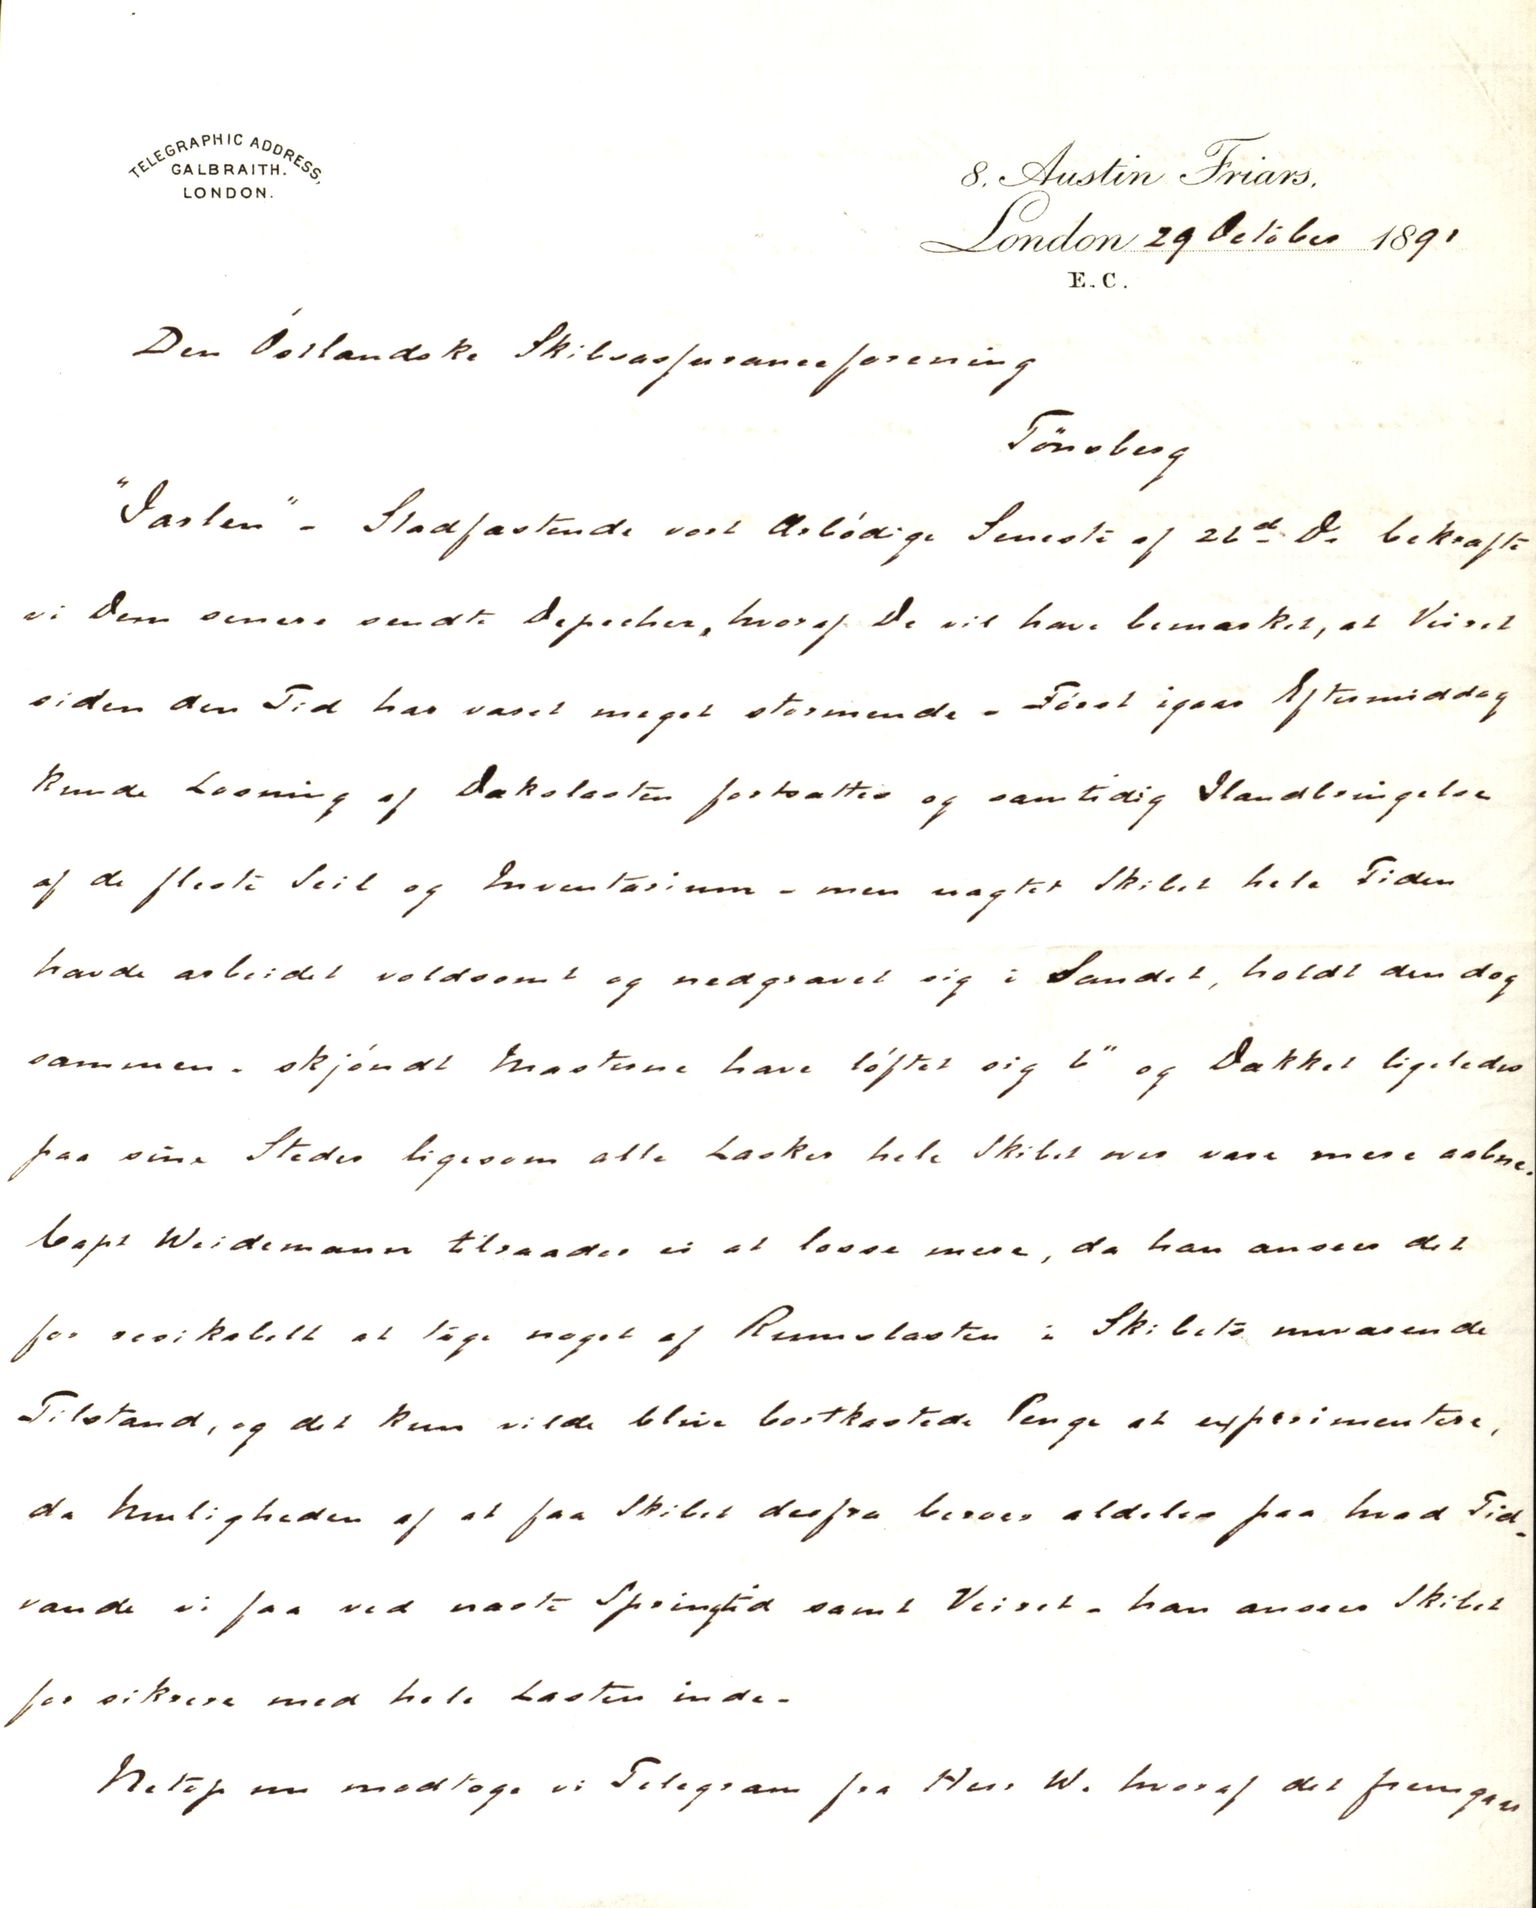 TELEGRAPHIC ADDRESS,
GALBRAITH.
LONDON.
8. Austin Friars.
London 29 October 1891
E.C.
Den Óstlandske Skibsassuranceforening
Tönsberg
"Jarlen" - Stadfæstende vort Ærbódige Seneste af 26d Ds bekræfte
vi Dem senere sendte Depecher, hvoraf De vil have bemærket, at Veiret
siden den Tid har været meget stormende - Fórst igaar Eftermiddag
kunde Losning af Dækslasten fortsættes og samtidig Ilandbringelse
af de fleste Seil og Inventarium - men uagtet Skibet hele Tiden
havde arbeidet voldsomt og nedgravet sig i Sandet, holdt den dog
sammen - skjóndt Masterne have lóftet sig 6" og Dækket ligeledes
paa sine Steder ligesom alle Lasker hele Skibet over vare mere aabne.
Capt Weidemann tilraader ei at losse mere, da han anseer det
for resikabelt at tage noget af Rumslasten i Skibets nuværende
Tilstand, og det kun vilde blive bortkastede Penge at experimentere,
da Muligheden af at faa Skibet derfra beroer aldeles paa hvad Tid-
vande vi faa ved næste Springtid samt Veiret - han anseer Skibet
for sikrere med hele Lasten inde -
Netop nu modtoge vi Telegram fra Herr W. hvoraf det fremgaar